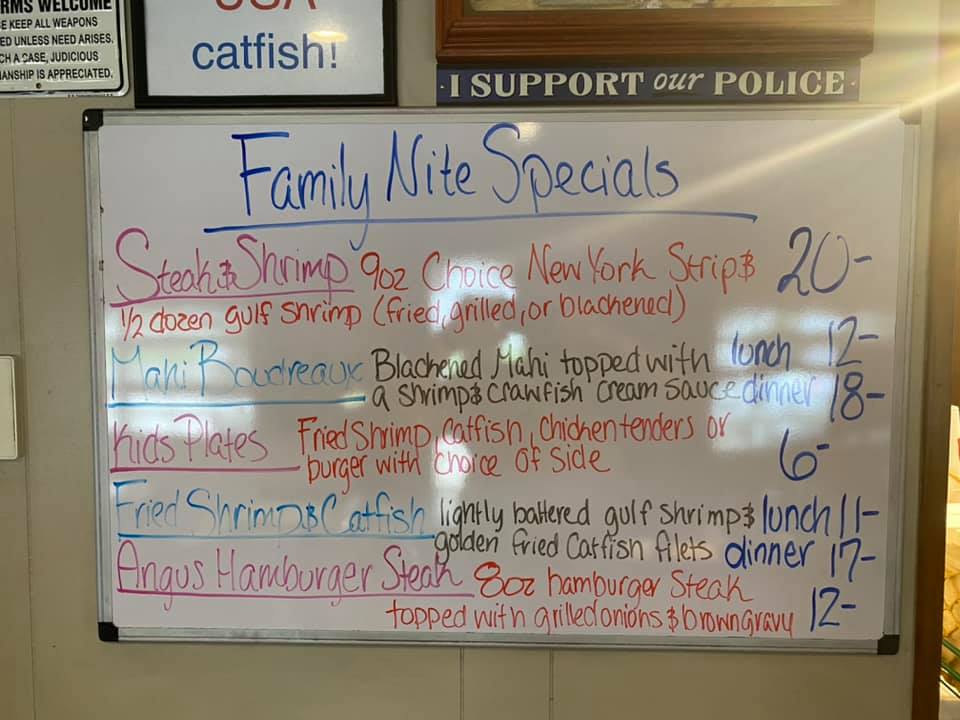 RMS WELCOME
E KEEP ALL WEAPONS
ED UNLESS NEED ARISES.
CH A CASE, JUDICIOUS
MANSHIP IS APPRECIATED.
USA
catfish!
· I SUPPORT our POLICE ·
Family Nite Specials
Steak & Shrimp 9oz Choice New York Strip & 20-
1/2 dozen gulf shrimp (fried, grilled, or blackened)
Mahi Boudreaux Blackened Mahi topped with lunch 12-
a shrimp & crawfish cream sauce dinner 18-
Kids Plates Fried Shrimp, Catfish, chicken tenders or
burger with choice of side 6-
Fried Shrimp & Catfish lightly battered gulf shrimp & lunch 11-
golden fried Catfish filets dinner 17-
Angus Hamburger Steak 8oz hamburger Steak
topped with grilled onions & brown gravy 12-